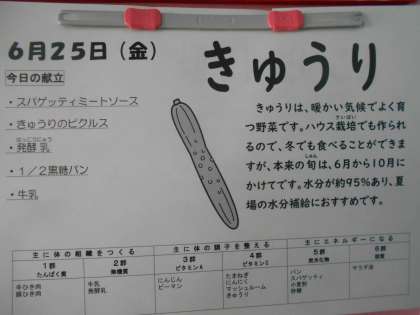 6月25日（金）
きゅうり
今日の献立
・スパゲッティミートソース
・きゅうりのピクルス
はっこうにゅう
・発酵 乳
・1／2黒糖パン
・牛乳
きゅうりは、暖かい気候でよく育
さいばい
つ野菜です。ハウス栽培でも作られ
るので、冬でも食べることができま
しゅん
すが、本来の旬は、6月から10月に
かけてです。水分が約95%あり、夏
場の水分補給におすすめです。
主に体の組織をつくる
主に体の調子を整える
主にエネルギーになる
1群 2群 3群 4群 5群 6群
たんぱく質 無機質 ビタミンA ビタミンC 炭水化物 脂質
牛ひき肉
豚ひき肉
牛乳
発酵乳
にんじん
ピーマン
たまねぎ
にんにく
マッシュルーム
きゅうり
パン
スパゲッティ
小麦粉
砂糖
サラダ油